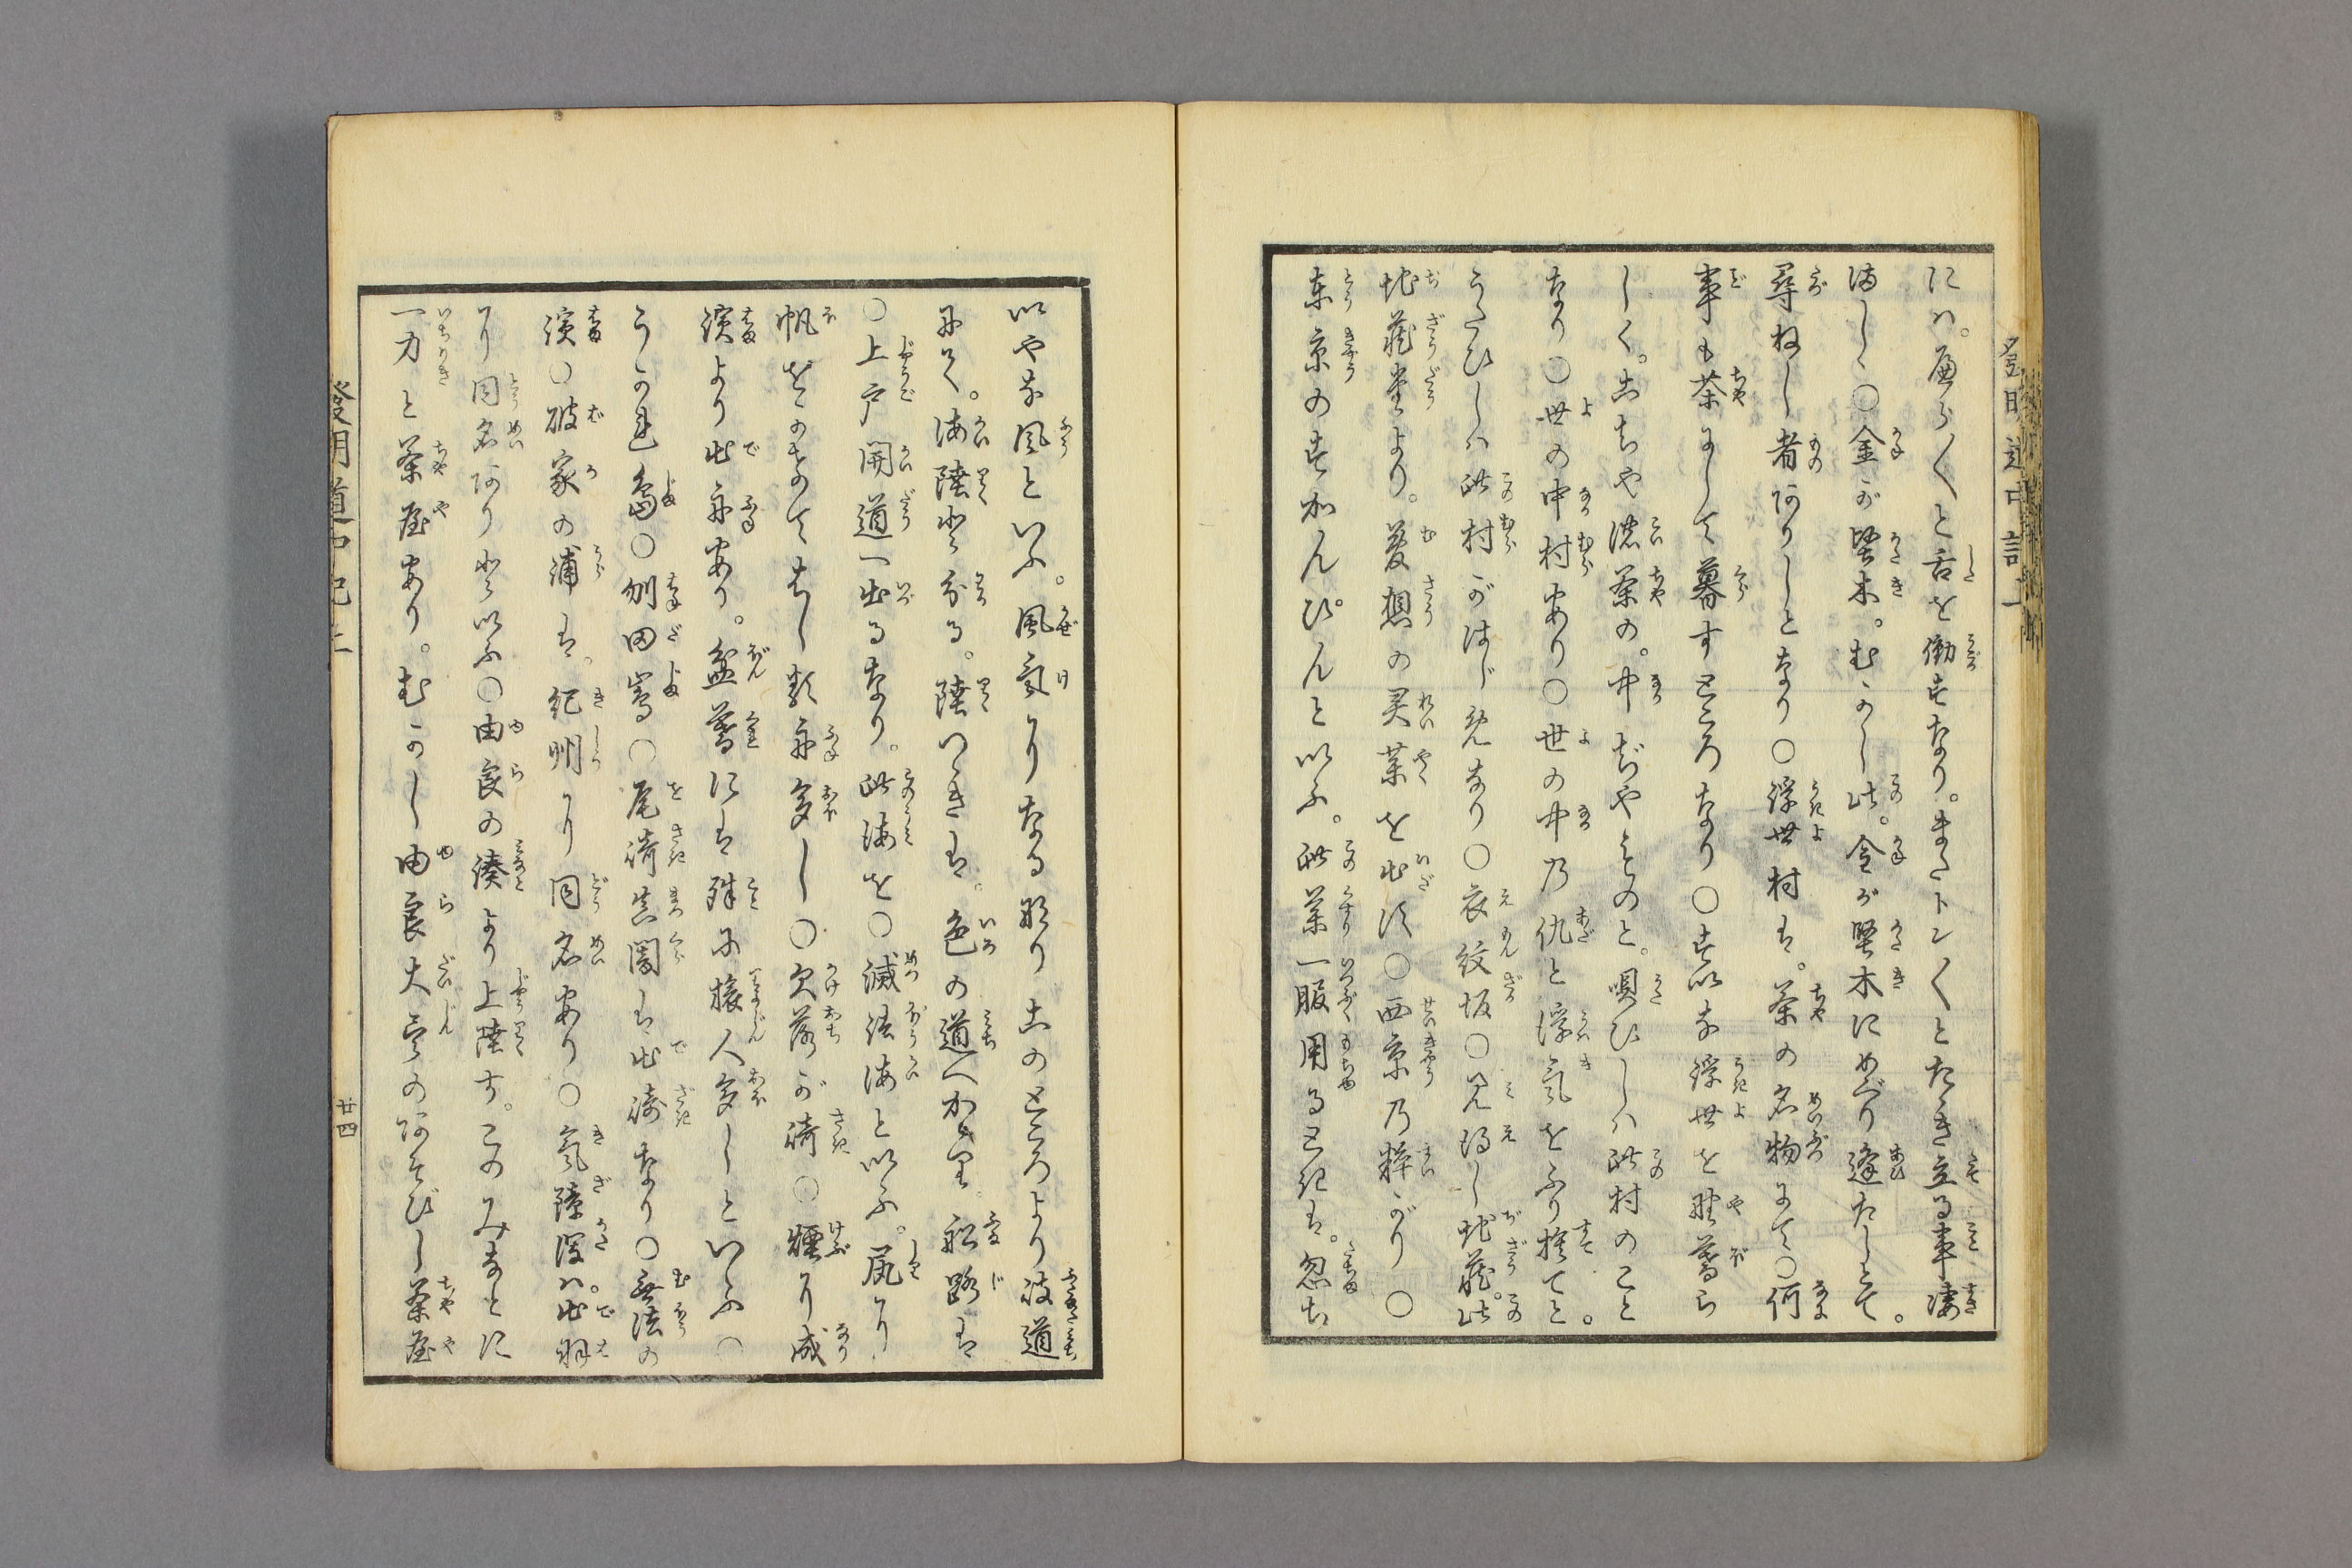 にハ。廣らく〳〵と舌を働すなり。またトン〳〵とたき立る事凄
ましく○金が堅木。むかし此。金が堅木にめぐり逢たしとて。
尋ねし者ありしとなり○浮世村は。茶の名物にて○何
事も茶にして暮すところなり○すいな浮世を野暮ら
しく。こちや濃茶の。中ぢやものと。唄ひしハ此村のこと
なり○世の中村あり○世の中乃仇と浮気をふり捨てと。
うたひしハ此村がはじめなり○衣紋坂○見得し地蔵。此
地蔵堂より。夢想の灵薬を出す○西京乃粋がり○
東京のすかんぴんと以ふ。此薬一服用る时は。忽ち
發明道中記上
いやな風といふ。風気りなる那りこのところより枝道
にて。海陸と分る。陸つきは。色の道へかゝり。船路は
○上戸開道へ出るなり。此海を○滅法海と以ふ。尻り
帆をかけてはしる船多し○欠落が崎○煙り成
濱より出舟あり。盆暮には殊に旅人多しといふ○
うかれ島○刎田島○尾崎真闇は出崎なり○無法の
濱○破家の浦は。紀州に同名あり○気障潟ハ。出羽
に同名ありと以ふ○由良の湊より上陸す。このみなとに
一力と茶屋あり。むかし由良大尽のあそびし茶屋
發明道中記上
廿四